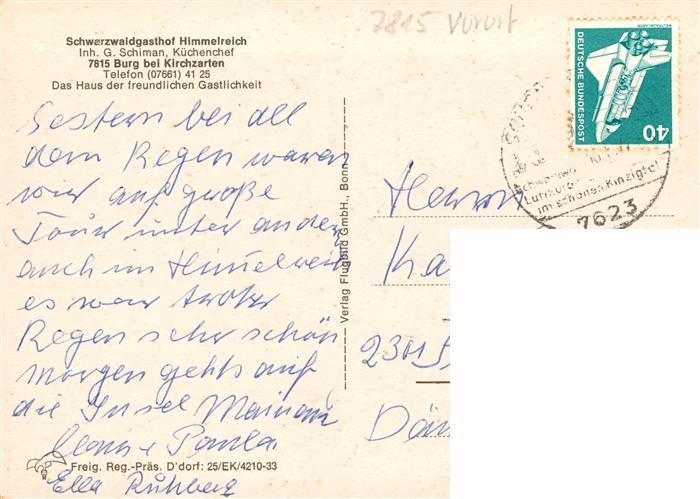 7815 Vorort
Schwarzwaldgasthof Himmelreich
Inh. G. Schiman, Küchenchef
7815 Burg bei Kirchzarten
Telefon (07661) 41 25
Das Haus der freundlichen Gastlichkeit
Gestern bei all
dem Regen waren
wir auf große
Tour unter ander
auch im Himmelreich
es war trotz
Regen sehr schön
morgen gehts auf
die Insel Mainau
Paula
Ella
Freig. Reg.-Präs. D'dorf: 25/EK/4210-33
Verlag Flugbild GmbH., Bonn
DEUTSCHE BUNDESPOST
WELTRAUMLABOR
40
im schönen Kinzigtal
7623
Herrn
Ka
2301
Dän